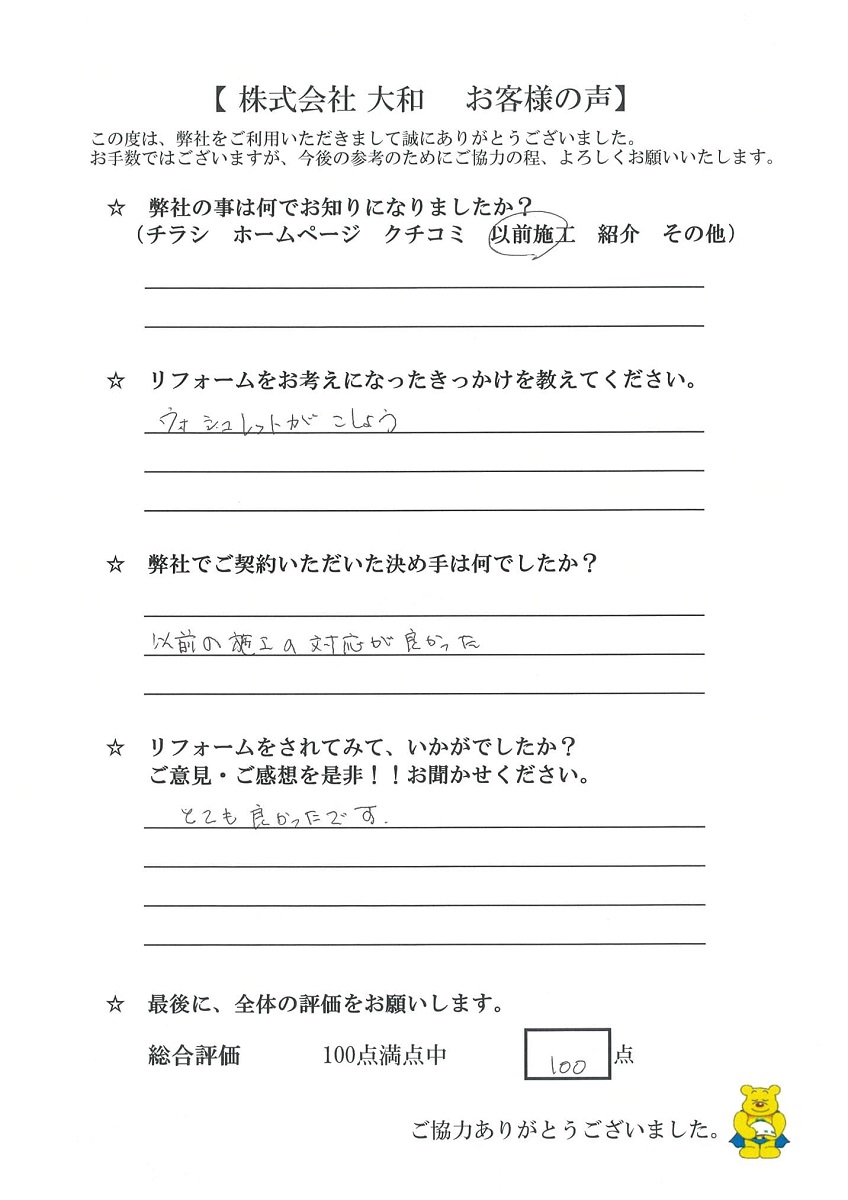 【 株式会社 大和　お客様の声】
この度は、弊社をご利用いただきまして誠にありがとうございました。
お手数ではございますが、今後の参考のためにご協力の程、よろしくお願いいたします。
☆　弊社の事は何でお知りになりましたか？
（チラシ　ホームページ　クチコミ　以前施工　紹介　その他）
☆　リフォームをお考えになったきっかけを教えてください。
ウォシュレットがこしょう
☆　弊社でご契約いただいた決め手は何でしたか？
以前の施工の対応が良かった
☆　リフォームをされてみて、いかがでしたか？
ご意見・ご感想を是非！！お聞かせください。
とても良かったです.
☆　最後に、全体の評価をお願いします。
総合評価　100点満点中　100点
ご協力ありがとうございました。